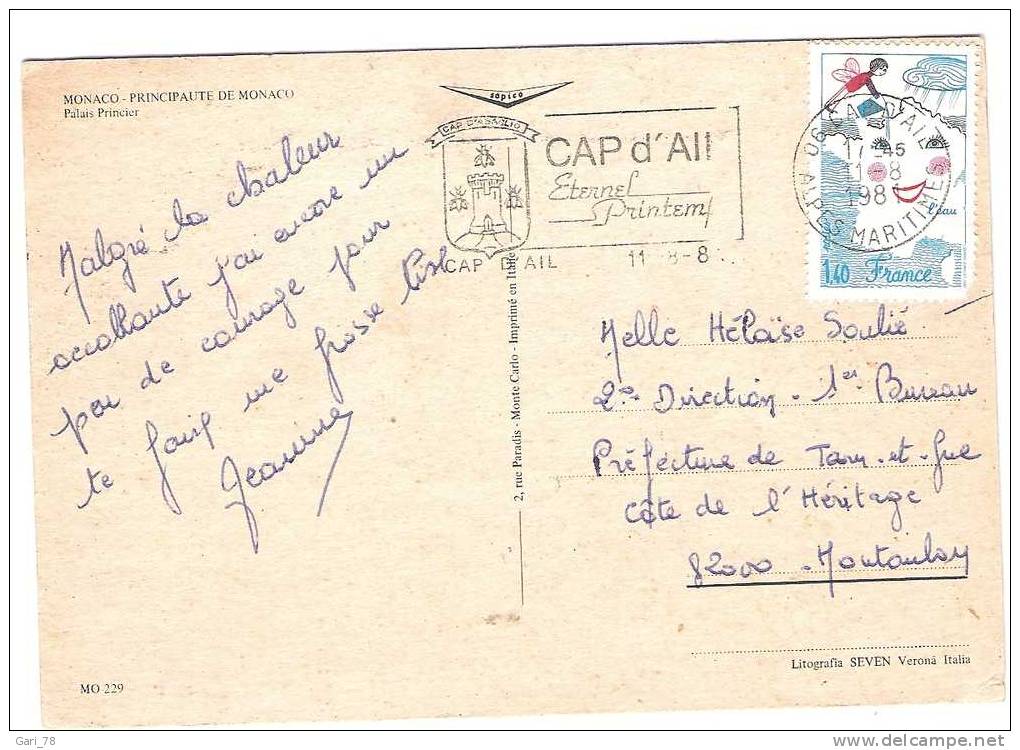 MONACO - PRINCIPAUTE DE MONACO
Palais Princier
sapico
CAP d'Ail
Eternel
Printemps
CAP D'AIL 11 -8-8
06 CAP D'AIL
17-45
11-8
1981
ALPES MARITIMES
l'eau
1,40 France
Malgré la chaleur
accablante j'ai encore un
peu de courage pour
te faire une grosse bise
Jeannine
2, rue Paradis - Monte Carlo - Imprimé en Italie
Melle Héloïse Soulié
2e Direction - 1er Bureau
Préfecture de Tarn-et-Gne
Côte de l'Héritage
82000 - Montauban
Litografia SEVEN Verona Italia
MO 229
Gari_78
www.delcampe.net